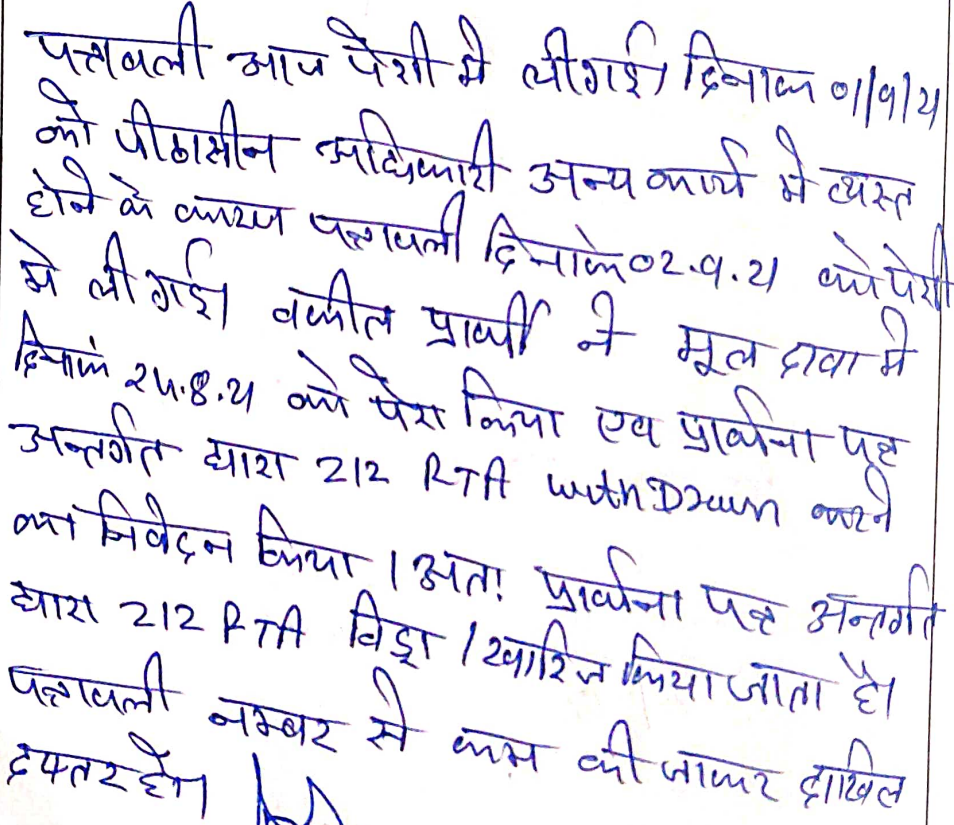 पत्रावली आज पेशी मे ली गई। दिनांक 01/9/21
को पीठासीन अधिकारी अन्य कार्य मे व्यस्त
होने के कारण पत्रावली दिनांक 02.9.21 को पेशी
मे ली गई। वकील प्रार्थी ने मूल दावा मे
दिनांक 24.8.21 को पेश किया एव प्रार्थना पत्र
अन्तर्गत धारा 212 RTA withDrawn करने
का निवेदन किया। अतः प्रार्थना पत्र अन्तर्गत
धारा 212 RTA विड्रा / खारिज किया जाता है।
पत्रावली नम्बर से कम की जाकर दाखिल
दफ्तर हो।